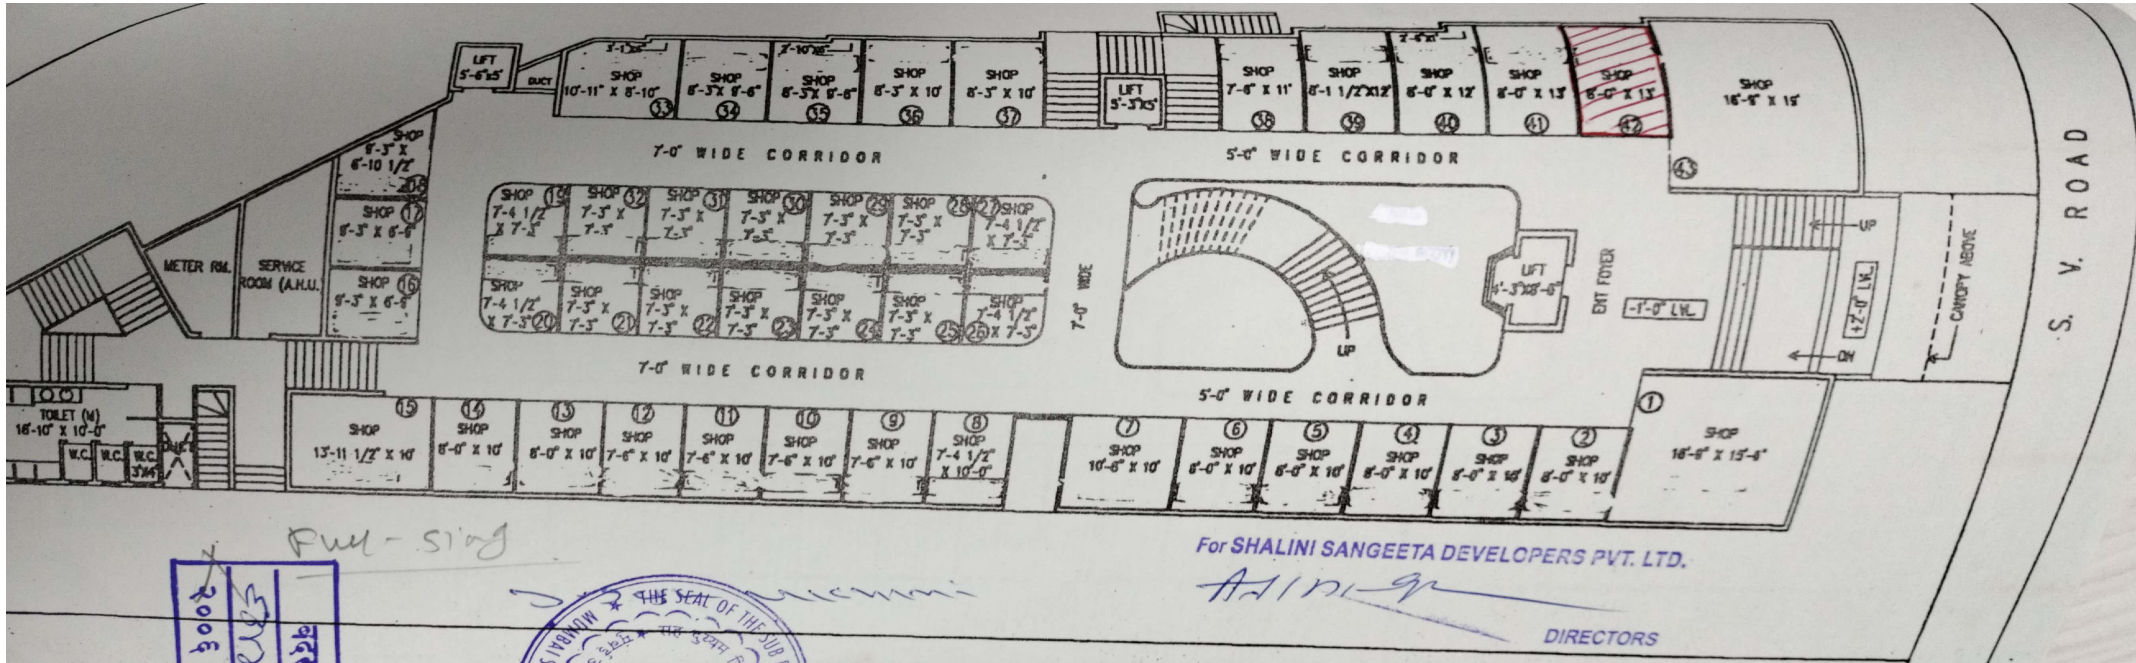 LIFT
5'-6"x5'
DUCT
3'-1"x6"
SHOP
10'-11" X 8'-10"
33
SHOP
8'-3"X 9'-6"
34
2'-10"x6"
SHOP
8'-3"X 9'-6"
35
SHOP
8'-3" X 10'
36
SHOP
8'-3" X 10'
37
LIFT
5'-3"X5'
SHOP
7'-6" X 11'
38
SHOP
8'-1 1/2"X12'
39
SHOP
8'-0" X 12'
40
SHOP
8'-0" X 13'
41
SHOP
8'-0" X 13'
42
SHOP
16'-9" X 19'
43
7'-0" WIDE CORRIDOR
5'-0" WIDE CORRIDOR
SHOP
9'-3" X
6'-10 1/2"
SHOP 17
9'-3" X 6'-9"
SHOP 16
9'-3" X 6'-9"
METER RM.
SERVICE
ROOM (A.H.U.
SHOP 19
7'-4 1/2"
X 7'-3"
SHOP 32
7'-3" X
7'-3"
SHOP 31
7'-3" X
7'-3"
SHOP 30
7'-3" X
7'-3"
SHOP 29
7'-3" X
7'-3"
SHOP 28
7'-3" X
7'-3"
27 SHOP
7'-4 1/2"
X 7'-3"
SHOP
7'-4 1/2"
X 7'-3" 20
SHOP
7'-3" X
7'-3" 21
SHOP
7'-3" X
7'-3" 22
SHOP
7'-3" X
7'-3" 23
SHOP
7'-3" X
7'-3" 24
SHOP
7'-3" X
7'-3" 25
SHOP
7'-4 1/2"
26 X 7'-3"
7'-0" WIDE
UP
LIFT
ENT FOYER
-1'-0" LVL.
UP
DN
+2'-0" LVL
CANOPY ABOVE
S. V. ROAD
7'-0" WIDE CORRIDOR
5'-0" WIDE CORRIDOR
TOILET (M)
16'-10" X 10'-0"
W.C.
W.C.
W.C.
3'X4'
DUCT
15
SHOP
13'-11 1/2" X 10'
14
SHOP
8'-0" X 10'
13
SHOP
8'-0" X 10'
12
SHOP
7'-6" X 10'
11
SHOP
7'-6" X 10'
10
SHOP
7'-6" X 10'
9
SHOP
7'-6" X 10'
8
SHOP
7'-4 1/2"
X 10'-0"
7
SHOP
10'-6" X 10'
6
SHOP
8'-0" X 10'
5
SHOP
8'-0" X 10'
4
SHOP
8'-0" X 10'
3
SHOP
8'-0" X 10'
2
SHOP
8'-0" X 10'
1
SHOP
16'-9" X 15'-6"
For SHALINI SANGEETA DEVELOPERS PVT. LTD.
DIRECTORS
THE SEAL OF THE SUB
MUMBAI
२००६